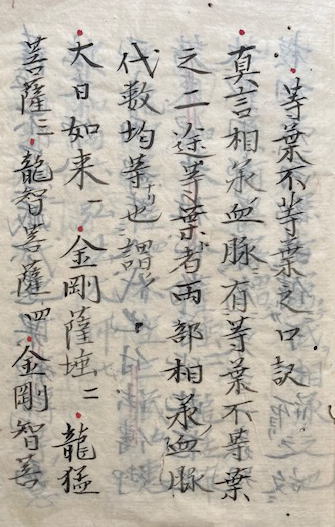 等葉不等葉之口訣
真言相承血脈ニ有等葉不等葉
之二途等葉者両部相承血脈
代数均等ナリ也謂
大日如来一金剛薩埵二龍猛
菩薩三龍智菩薩四金剛智菩